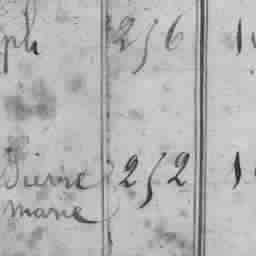 ph 256 1
Pierre 252 1
marie